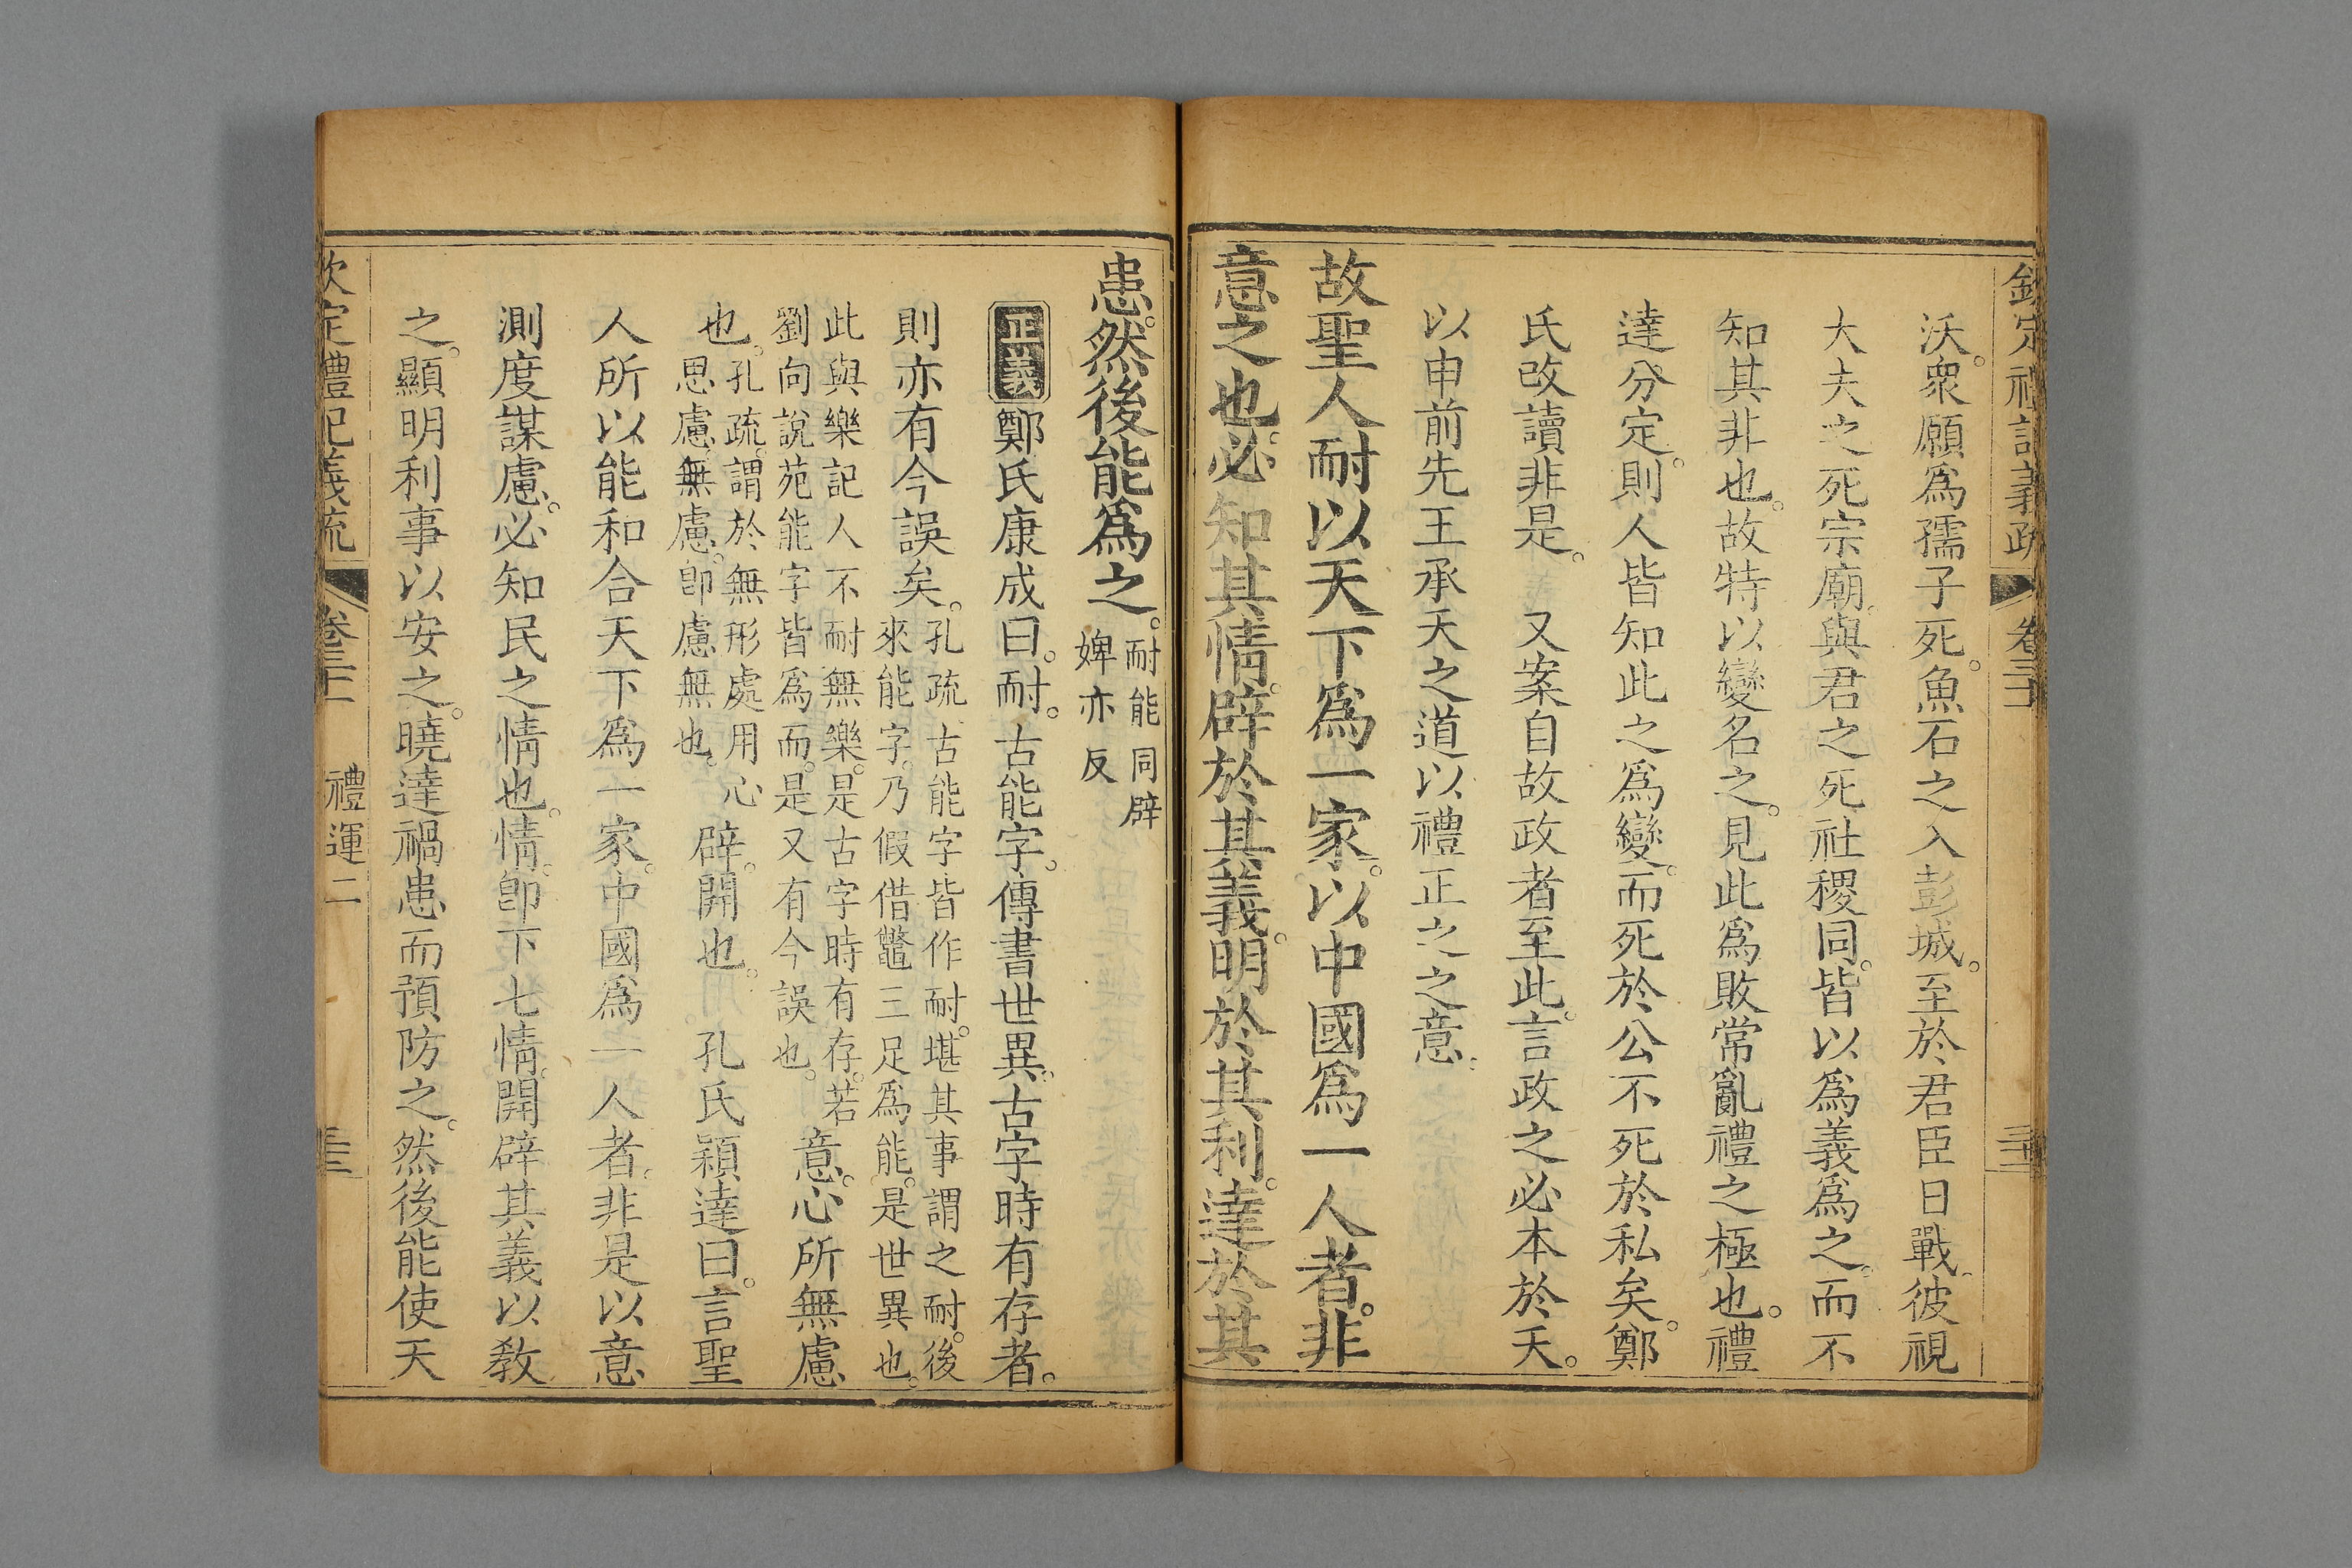 欽定禮記義疏 卷三十
沃。衆願爲孺子死。魚石之入彭城。至於君臣日戰。彼視
大夫之死宗廟。與君之死社稷同。皆以爲義爲之。而不
知其非也。故特以變名之。見此爲敗常亂禮之極也。禮
達分定。則人皆知此之爲變。而死於公不死於私矣。鄭
氏改讀非是。 又案自故政者至此。言政之必本於天。
以申前先王承天之道以禮正之之意。
故聖人耐以天下爲一家。以中國爲一人者。非
意之也。必知其情。辟於其義。明於其利。達於其
患。然後能爲之。
耐能同辟
婢亦反
正義鄭氏康成曰。耐。古能字。傳書世異。古字時有存者。
則亦有今誤矣。
孔疏。古能字皆作耐。堪其事謂之耐。後
來能字。乃假借鼈三足爲能。是世異也。
此與樂記人不耐無樂。是古字時有存。若
劉向說苑能字皆爲而。是又有今誤也。
意。心所無慮
也。
孔疏。謂於無形處用心
思慮。無慮。卽慮無也。
辟。開也。 孔氏穎達曰。言聖
人所以能和合天下爲一家。中國爲一人者。非是以意
測度謀慮。必知民之情也。情。卽下七情。開辟其義以敎
之。顯明利事以安之。曉達禍患而預防之。然後能使天
欽定禮記義疏 卷三十 禮運二